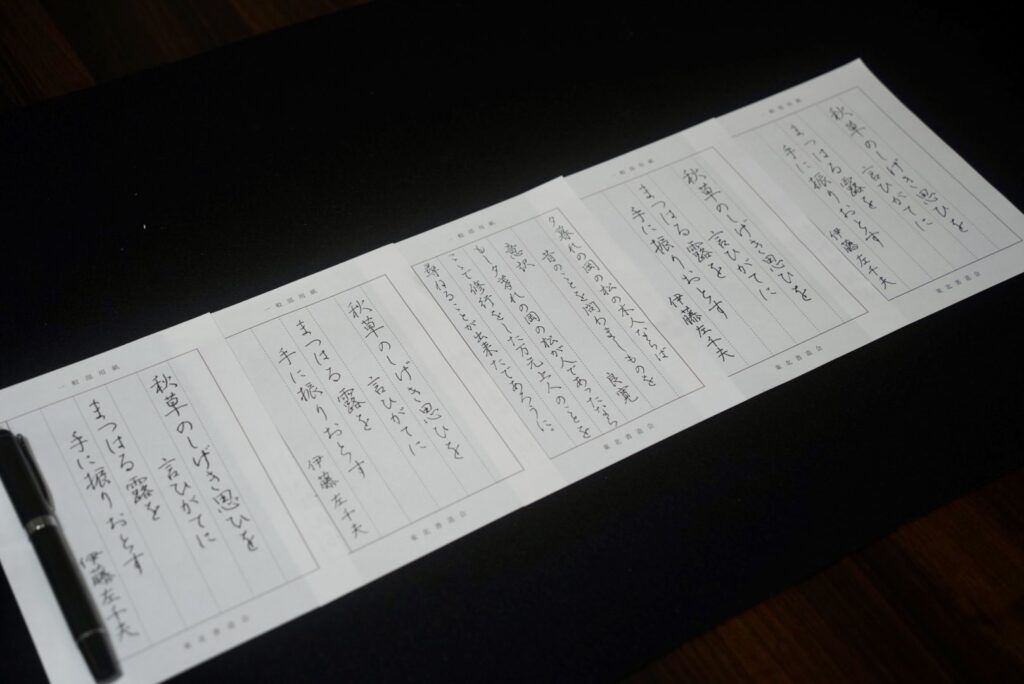 一般部用紙
秋草のしげき思ひを
言ひがてに
まつはる露を
手に振りおとす
伊藤左千夫
東北書道会
一般部用紙
秋草のしげき思ひを
言ひがてに
まつはる露を
手に振りおとす
伊藤左千夫
東北書道会
一般部用紙
夕暮れの岡の松の木人ならば
昔のことを問わましものを
良寛
意訳
もし夕暮れの岡の松が人であったなら
ここで修行をした万元上人のことを
尋ねることが出来たであろうに
東北書道会
一般部用紙
秋草のしげき思ひを
言ひがてに
まつはる露を
手に振りおとす
伊藤左千夫
東北書道会
一般部用紙
秋草のしげき思ひを
言ひがてに
まつはる露を
手に振りおとす
伊藤左千夫
東北書道会